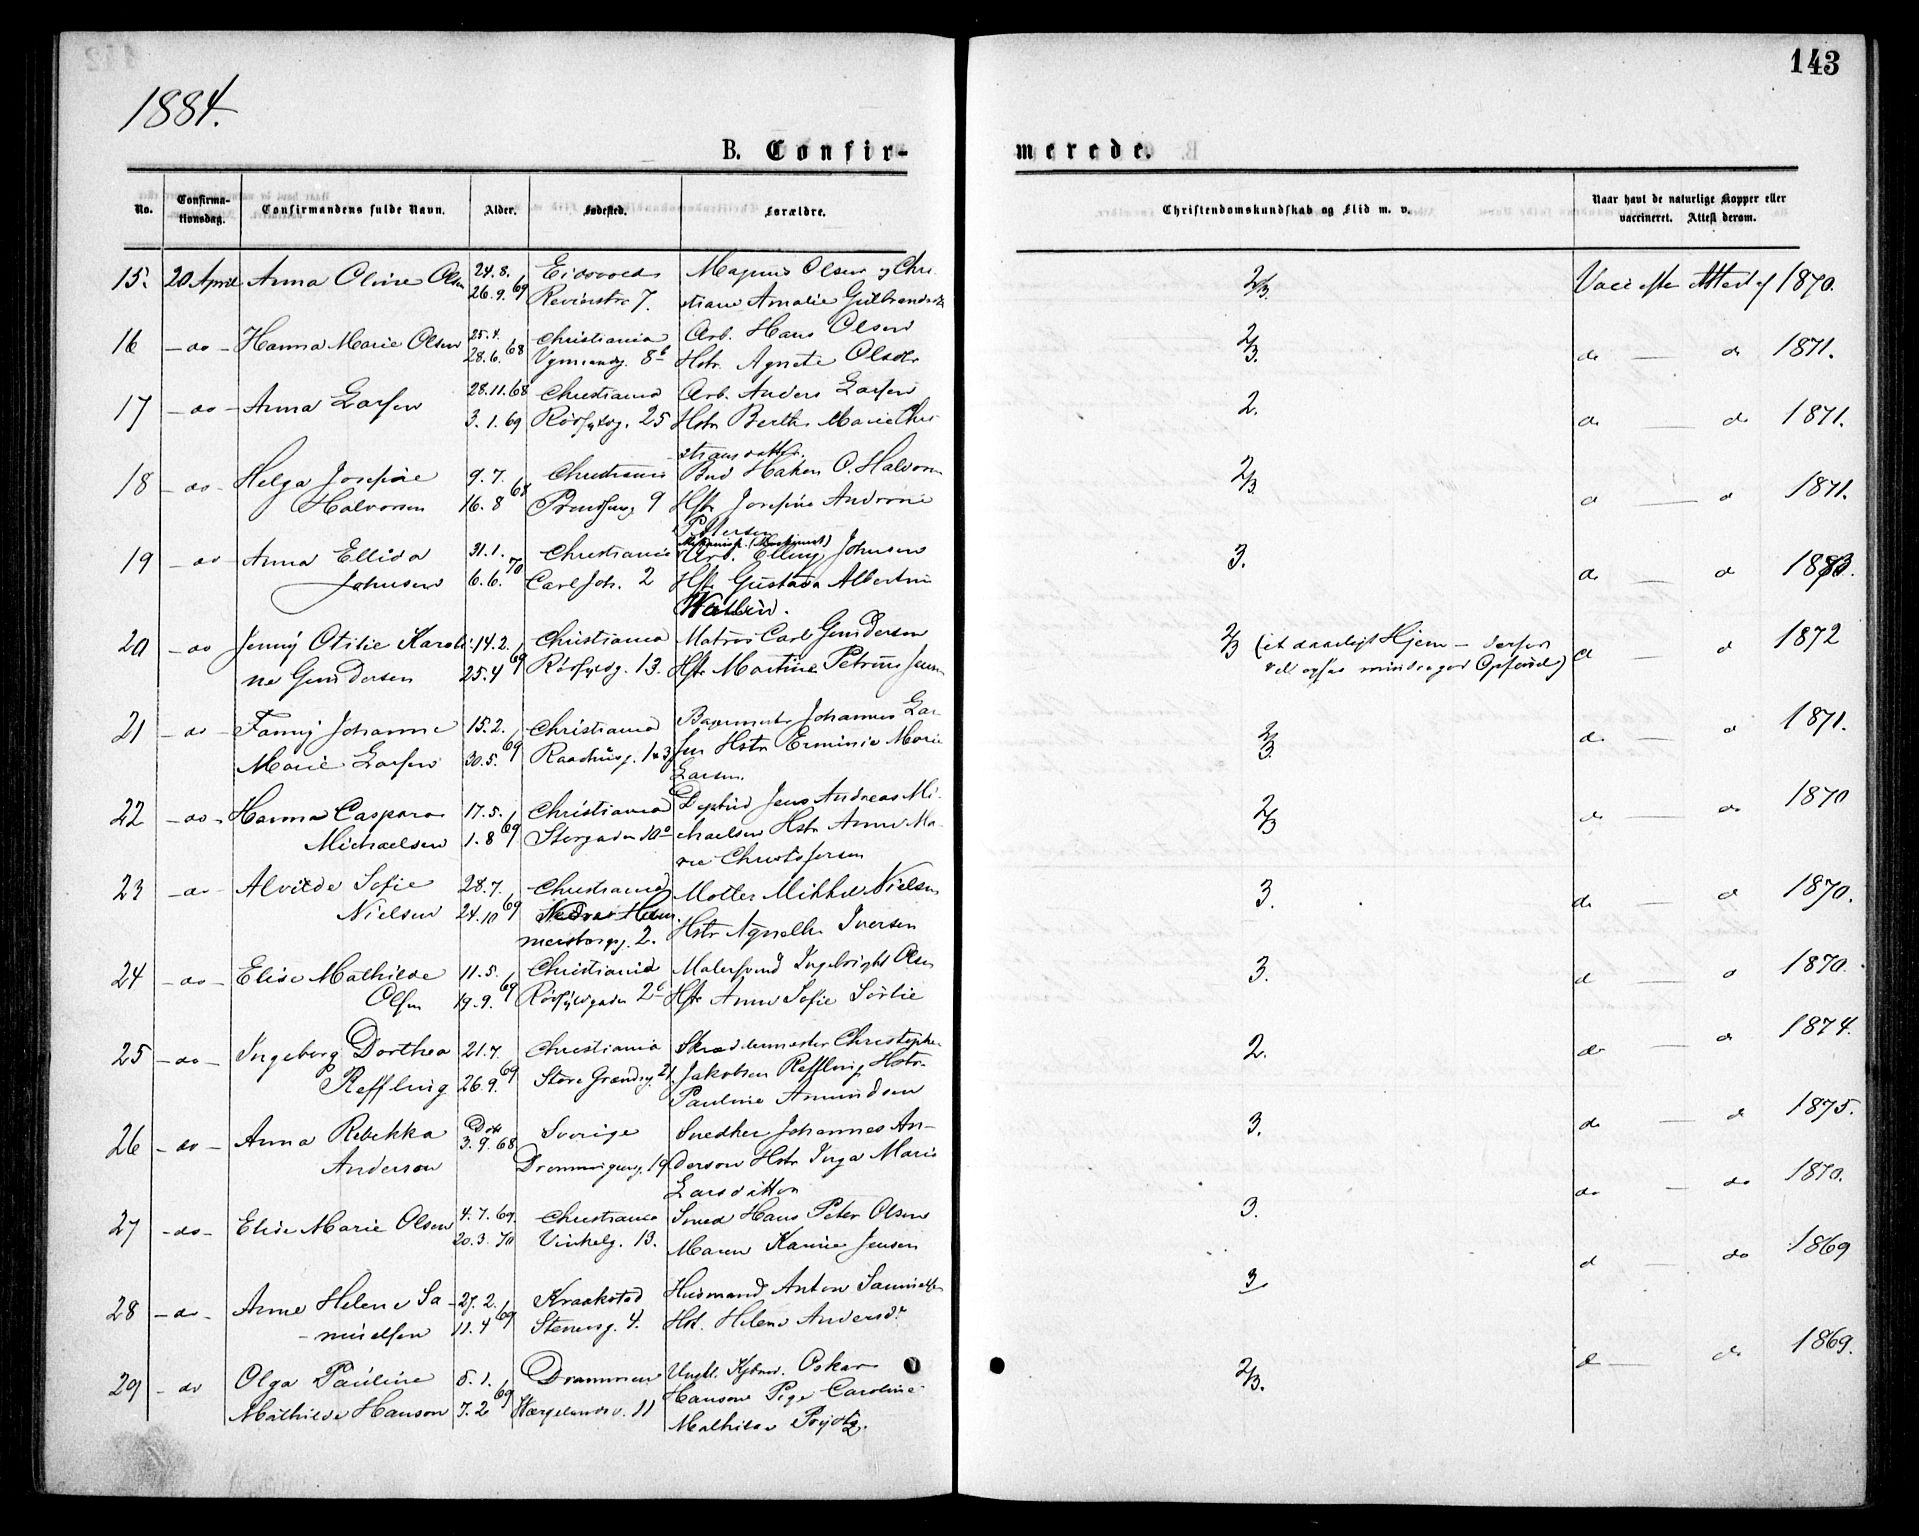 143
1884.
B. Confir-
merede.
No.
Confirma-
tionsdag.
Confirmandens fulde Navn.
Alder.
Fødested.
Forældre.
Christendomskundskab og Flid m. v.
Naar havt de naturlige Kopper eller
vaccineret. Attest derom.
15. 20 April Anna Oline Olsen 24.8. Eidsvold Magnus Olsen og Chri-
26.9. 69 Revierstr 7. stiane Amalie 2/3. Vacc efter Attest af 1870.
16 - do - Hanna Marie Olsen 25.4. Christiania Arb. Hans Olsen
28.6. 68 8b Hstr. Agnete Olsdtr 2/3. do - do 1871.
17 - do - Anna Larsen 28.11.68 Christiania Arb. Anders Larsen
3.1.69 25 Hstr Berthe Marie Chri
stiansdatter. 2. do do 1871.
18 - do - Helga Josefine 9.7. Christiania Bud Haken O. Halvorsen
Halvorsen 16.8 68 9 Hstr Josefine
Pettersen 2/3. d - d 1871.
19 - do Anna Ellida 31.1. Christiania Arb. Elling Johnsen
Johnsen 6.6. 70 Carl Joh. 2 Hstr Gustava Albertine
Wallin. 3. do - d 1883.
20 - do Jenny Otilie Karoli- 14.2. Christiania Matros Carl Gundersen
ne Gundersen 25.4 69 13. Hstr Martine Petrine Jensen
2/3 (et daarligt Hjem - derfor
d - d 1872
21 - do - Fanny Johanne 15.2. Christiania Bagermester Johannes Lar-
Marie Larsen 30.5. 69 Raadhusg. sen Hstr Erminie Marie
Larsen. 2/3. do - d 1871.
22 - do - Hanna Caspara 17.5. Christiania Jens Andreas Mi-
Michaelsen 1.8 69 Storgaden 10 chaelsen Hstr Anne Ma-
rie Christofersen 2/3 do - do 1870
23 - do Alvilde Sofie 28.7. Christiania Møller Mikkel Nielsen
Nielsen 24.10 69 Nedre Ham-
mersborgg. 2. Hstr Agnethe Iversen 3. do - d 1870.
24 - do - Elise Mathilde 11.5. Christiania Malersvend Ingebright Olsen
Olsen 19.9. 69 Hstr Anne Sofie Sørlie 3. d - d 1870.
25 - do - Ingeborg Dorthea 21.7. Christiania Skrædermester Christopher
Reffling 26.9. 69 Store Grændsg. 21. Jakobsen Reffling Hstr
Pauline Amundsen 2. do - do 1874.
26 - do - Anna Rebekka 3.9.68 Sverige Snedker Johannes An-
Anderson Drammensv. 19 derson Hstr Inga Marie
Larsdatter 3. do - d 1875.
27 - do - Elise Marie Olsen 4.7.69. Christiania Smed Hans Peter Olsen
20.3.70 Vinkelg. 13. Maren Karine Jensen 3. do - do 1870.
28 - do - Anne Helene Sa- 27.2. Kraakstad Husmand Anton Samuelsen
muelsen 11.4 69 Stenersg. 4. Hst. Helene Andersdr 3 d - do 1869
29 - do Olga Pauline 5.1. Drammen Oskar
Mathilde Hanson 7.2 69 Wergelandsv. 11 Hanson Pige Caroline
Mathilde 2/3. d - do 1869.